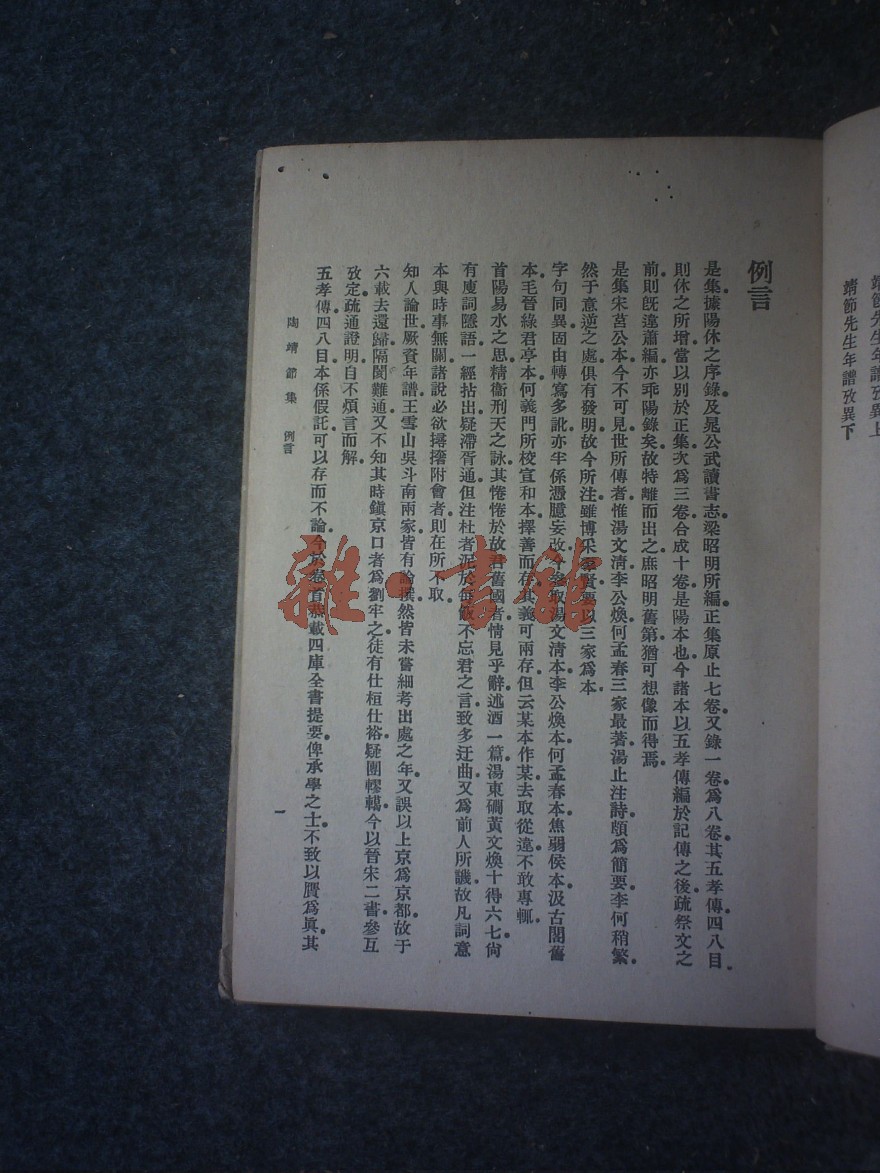 靖節先生年譜攷異上
靖節先生年譜攷異下
例言
是集據陽休之序錄及晁公武讀書志梁昭明所編正集原止七卷又錄一卷爲八卷其五孝傳四八目
則休之所增當以別於正集次爲三卷合成十卷是陽本也今諸本以五孝傳編於記傳之後疏祭文之
前則既違蕭編亦乖陽錄矣故特離而出之庶昭明舊第猶可想像而得焉
是集宋莒公本今不可見世所傳者惟湯文清李公煥何孟春三家最著湯止注詩頗爲簡要李何稍繁
然于意逆之處俱有發明故今所注雖博采羣賢要以三家爲本
字句同異固由轉寫多訛亦半係憑臆妄改今參取湯文清本李公煥本何孟春本焦弱侯本汲古閣舊
本毛晉綠君亭本何義門所校宣和本擇善而存其義可兩存但云某本作某去取從違不敢專輒
首陽易水之思精衞刑天之詠其惓惓於故君舊國者情見乎辭述酒一篇湯東磵黃文煥十得六七尙
有廋詞隱語一經拈出疑滯胥通但注杜者泥於每飯不忘君之言致多迂曲又爲前人所譏故凡詞意
本與時事無關諸說必欲撏撦附會者則在所不取
知人論世厥賚年譜王雪山吳斗南兩家皆有論撰然皆未嘗細考出處之年又誤以上京爲京都故于
六載去還歸隔閡難通又不知其時鎭京口者爲劉牢之徒有仕桓仕裕疑團轇轕今以晉宋二書參互
攷定疏通證明自不煩言而解
五孝傳四八目本係假託可以存而不論今於卷首恭載四庫全書提要俾承學之士不致以贋爲眞其
陶靖節集 例言
一
雜·書館